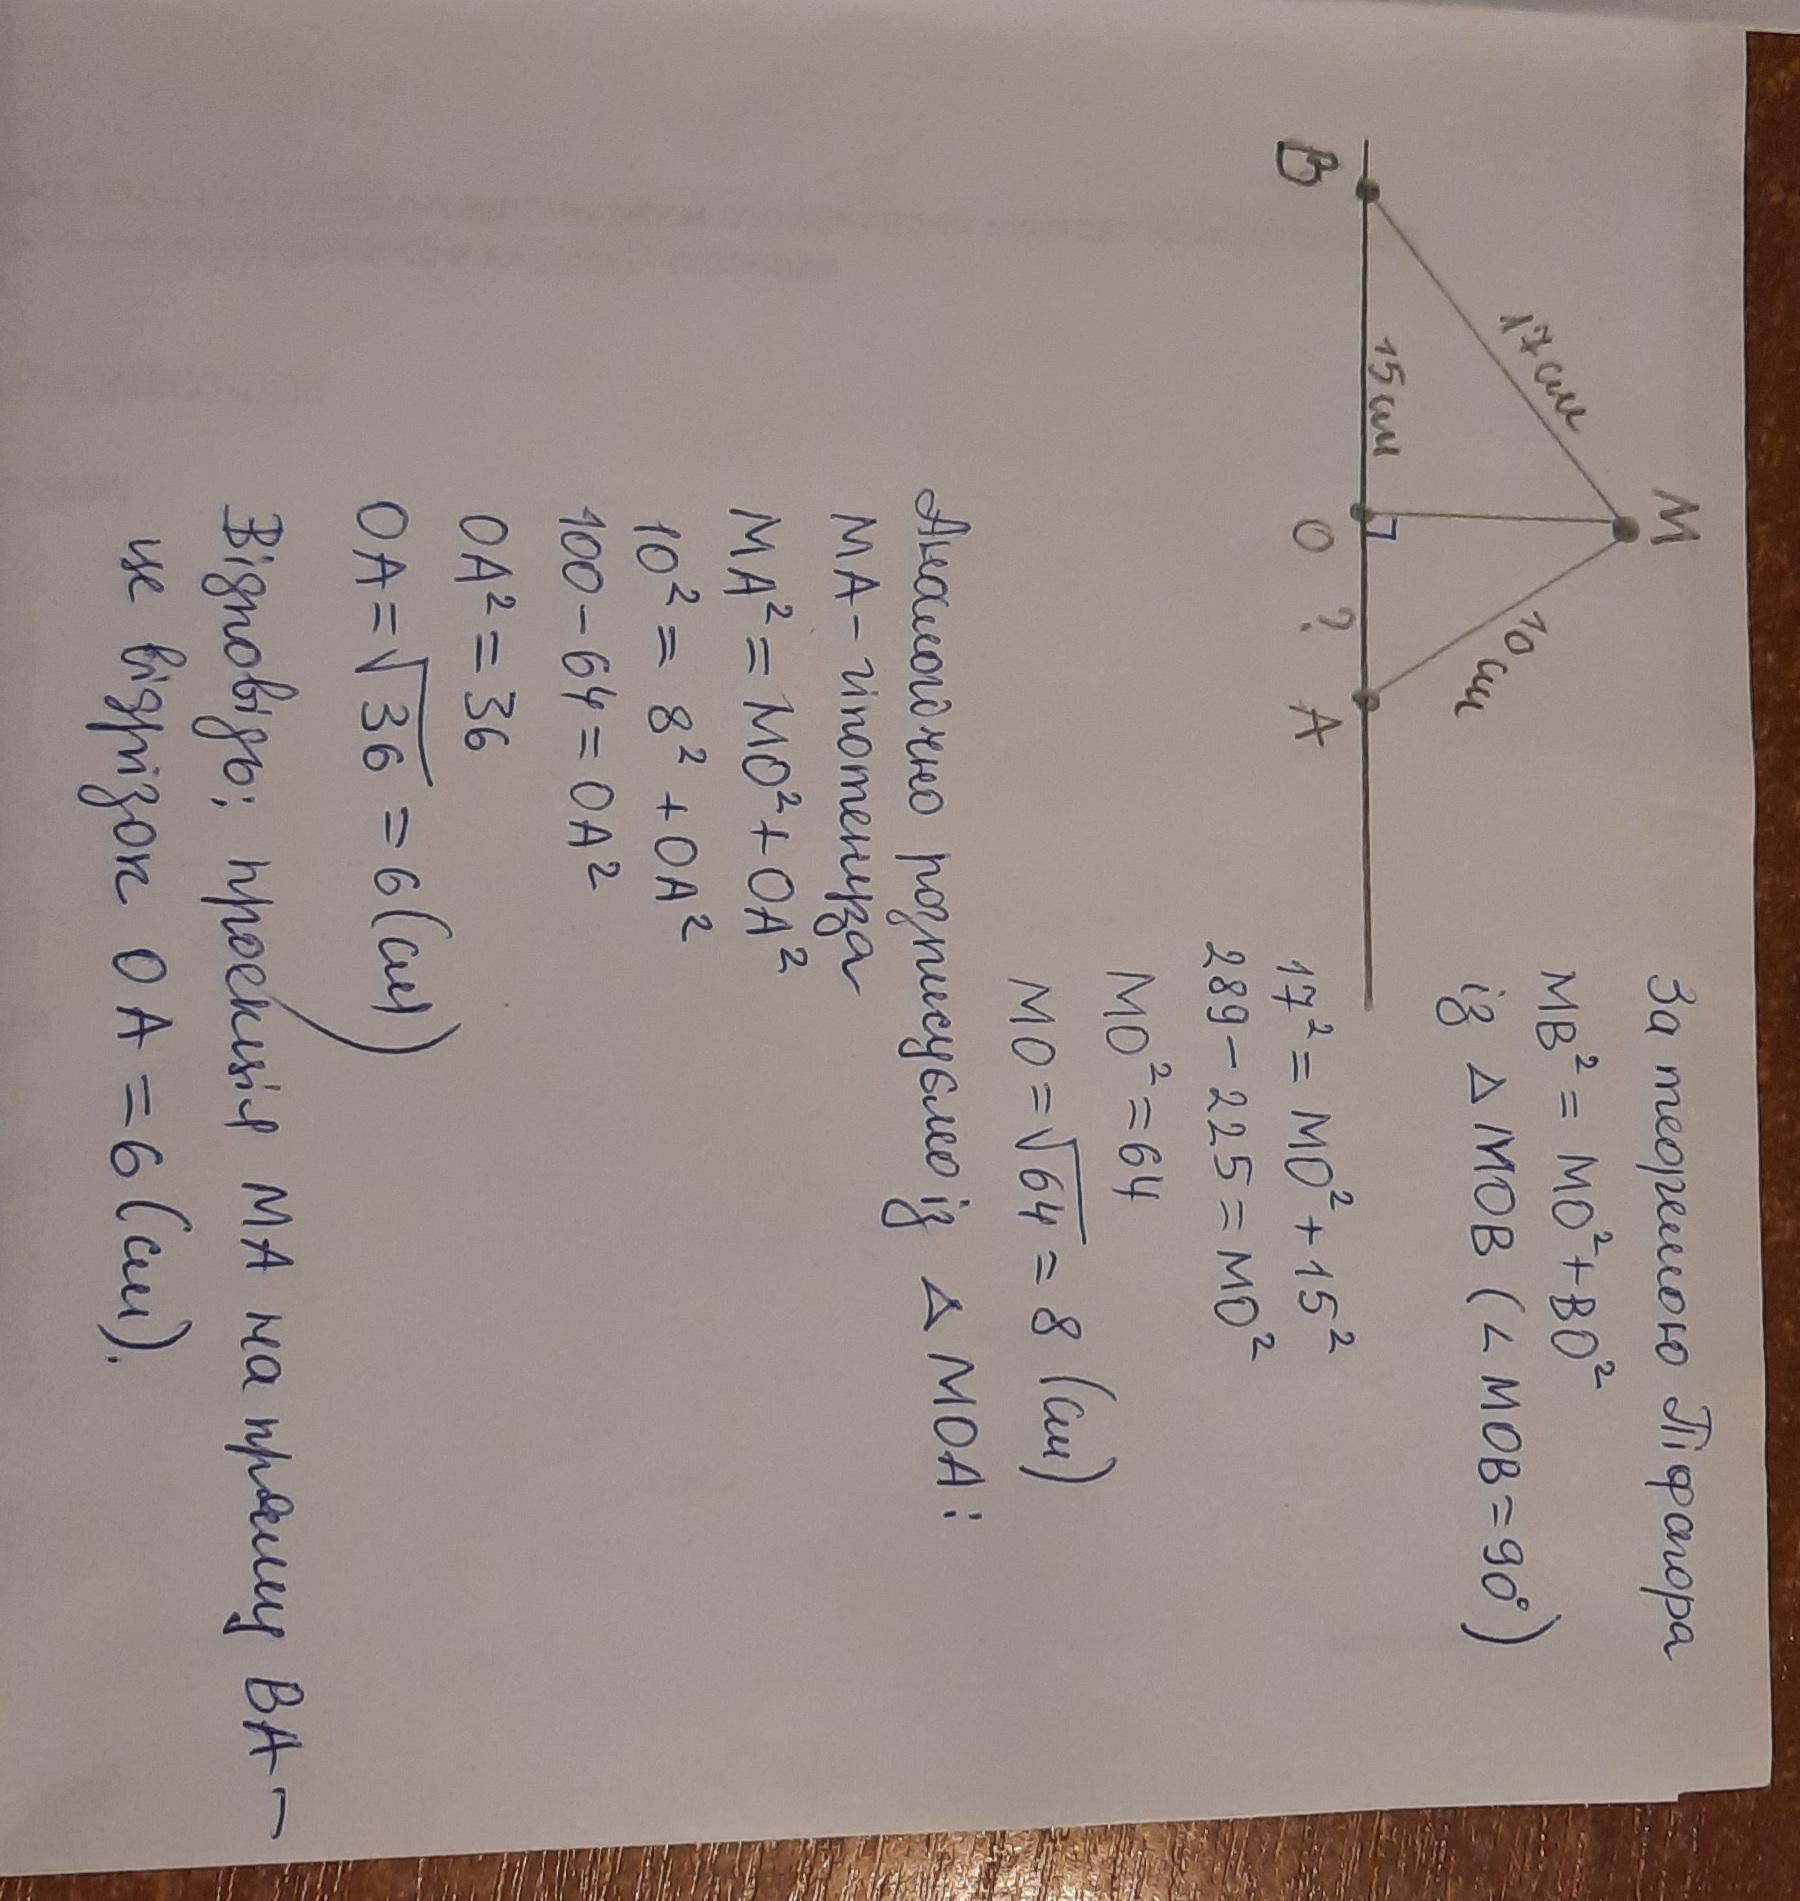 M
17 см
10 см
15 см
B
O
?
A
За теоремою Піфагора
MB² = MO² + BO²
із △ MOB (∠ MOB = 90°)
17² = MO² + 15²
289 - 225 = MO²
MO² = 64
MO = √64 = 8 (см)
Аналогічно розписуємо із △ MOA:
MA - гіпотенуза
MA² = MO² + OA²
10² = 8² + OA²
100 - 64 = OA²
OA² = 36
OA = √36 = 6 (см)
Відповідь: проекція MA на пряму BA -
це відрізок OA = 6 (см).